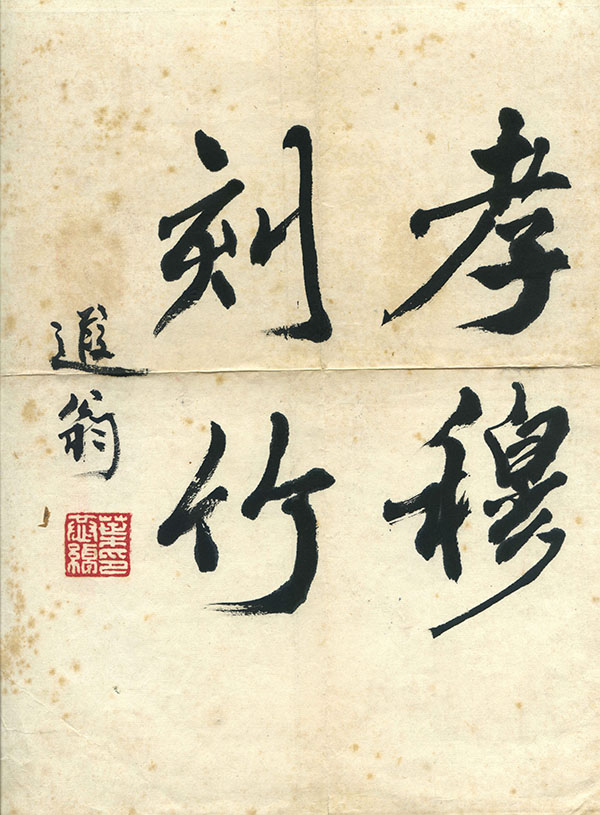 孝穆
刻竹
遐翁
葉恭綽印